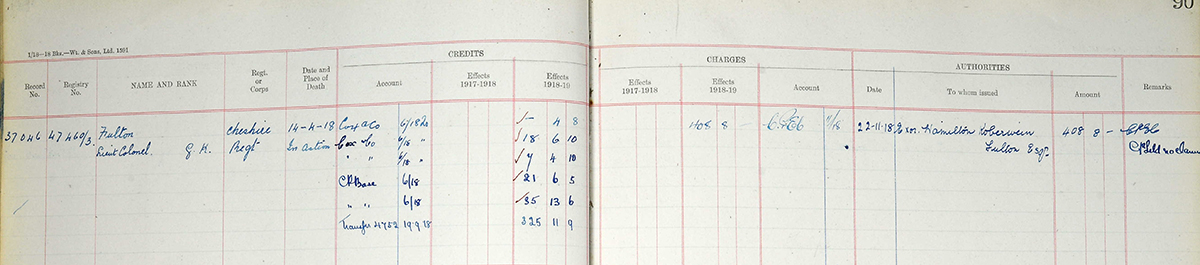 90
1/18—18 Bks.—Wt. & Sons, Ltd. 1591
CREDITS
CHARGES
AUTHORITIES
Record No.
Registry No.
NAME AND RANK
Regt. or Corps
Date and Place of Death
Account
Effects 1917-1918
Effects 1918-19
Effects 1917-1918
Effects 1918-19
Account
Date
To whom issued
Amount
Remarks
37046 Fulton Cheshire 14-4-18 Cox & Co 6/18 - 4 8 408 8 - 22-11-18 Hamilton Fulton Esqr. 408 8 -
Lieut Colonel. G K. Regt In Action Cox Co /18 " 18 6 10
" " 6/18 " 7 4 10
CP Base 6/18 21 6 5
" " 6/18 35 13 6
Transfer 19 9 18 325 11 9